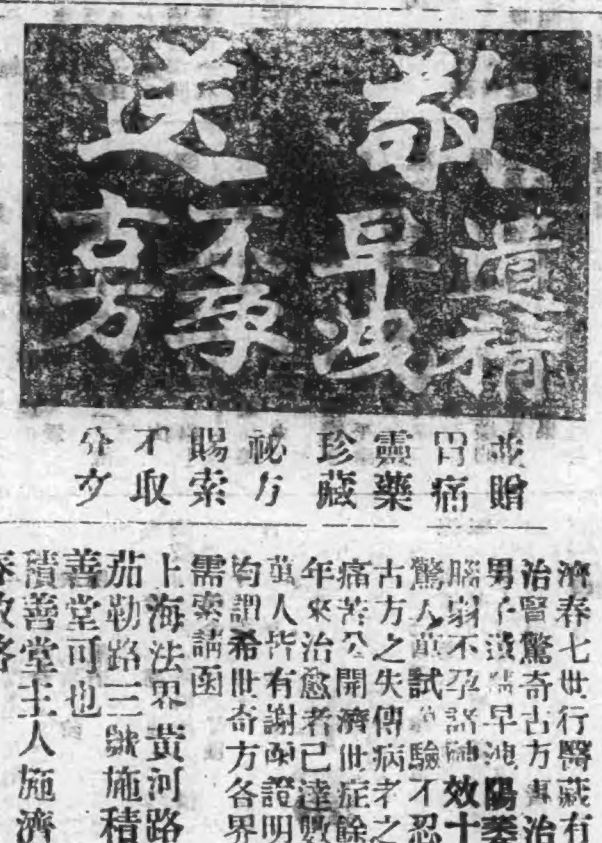 敬送
遺精
早洩
不孕
古方
或贈
胃痛
靈藥
珍藏
祕方
賜索
不取
分文
濟春七世行醫藏有
治腎驚奇古方專治
男子遺精早洩陽萎
腦弱不孕諸神效十
驚人萬試驗不忍
古方之失傳病者之
痛苦公開濟世症餘
年來治愈者已達數
萬人皆有謝函證明
均謂希世奇方各界
需索請函
上海法界黃河路
茄勒路三號施積
善堂可也
積善堂主人施濟
春啟